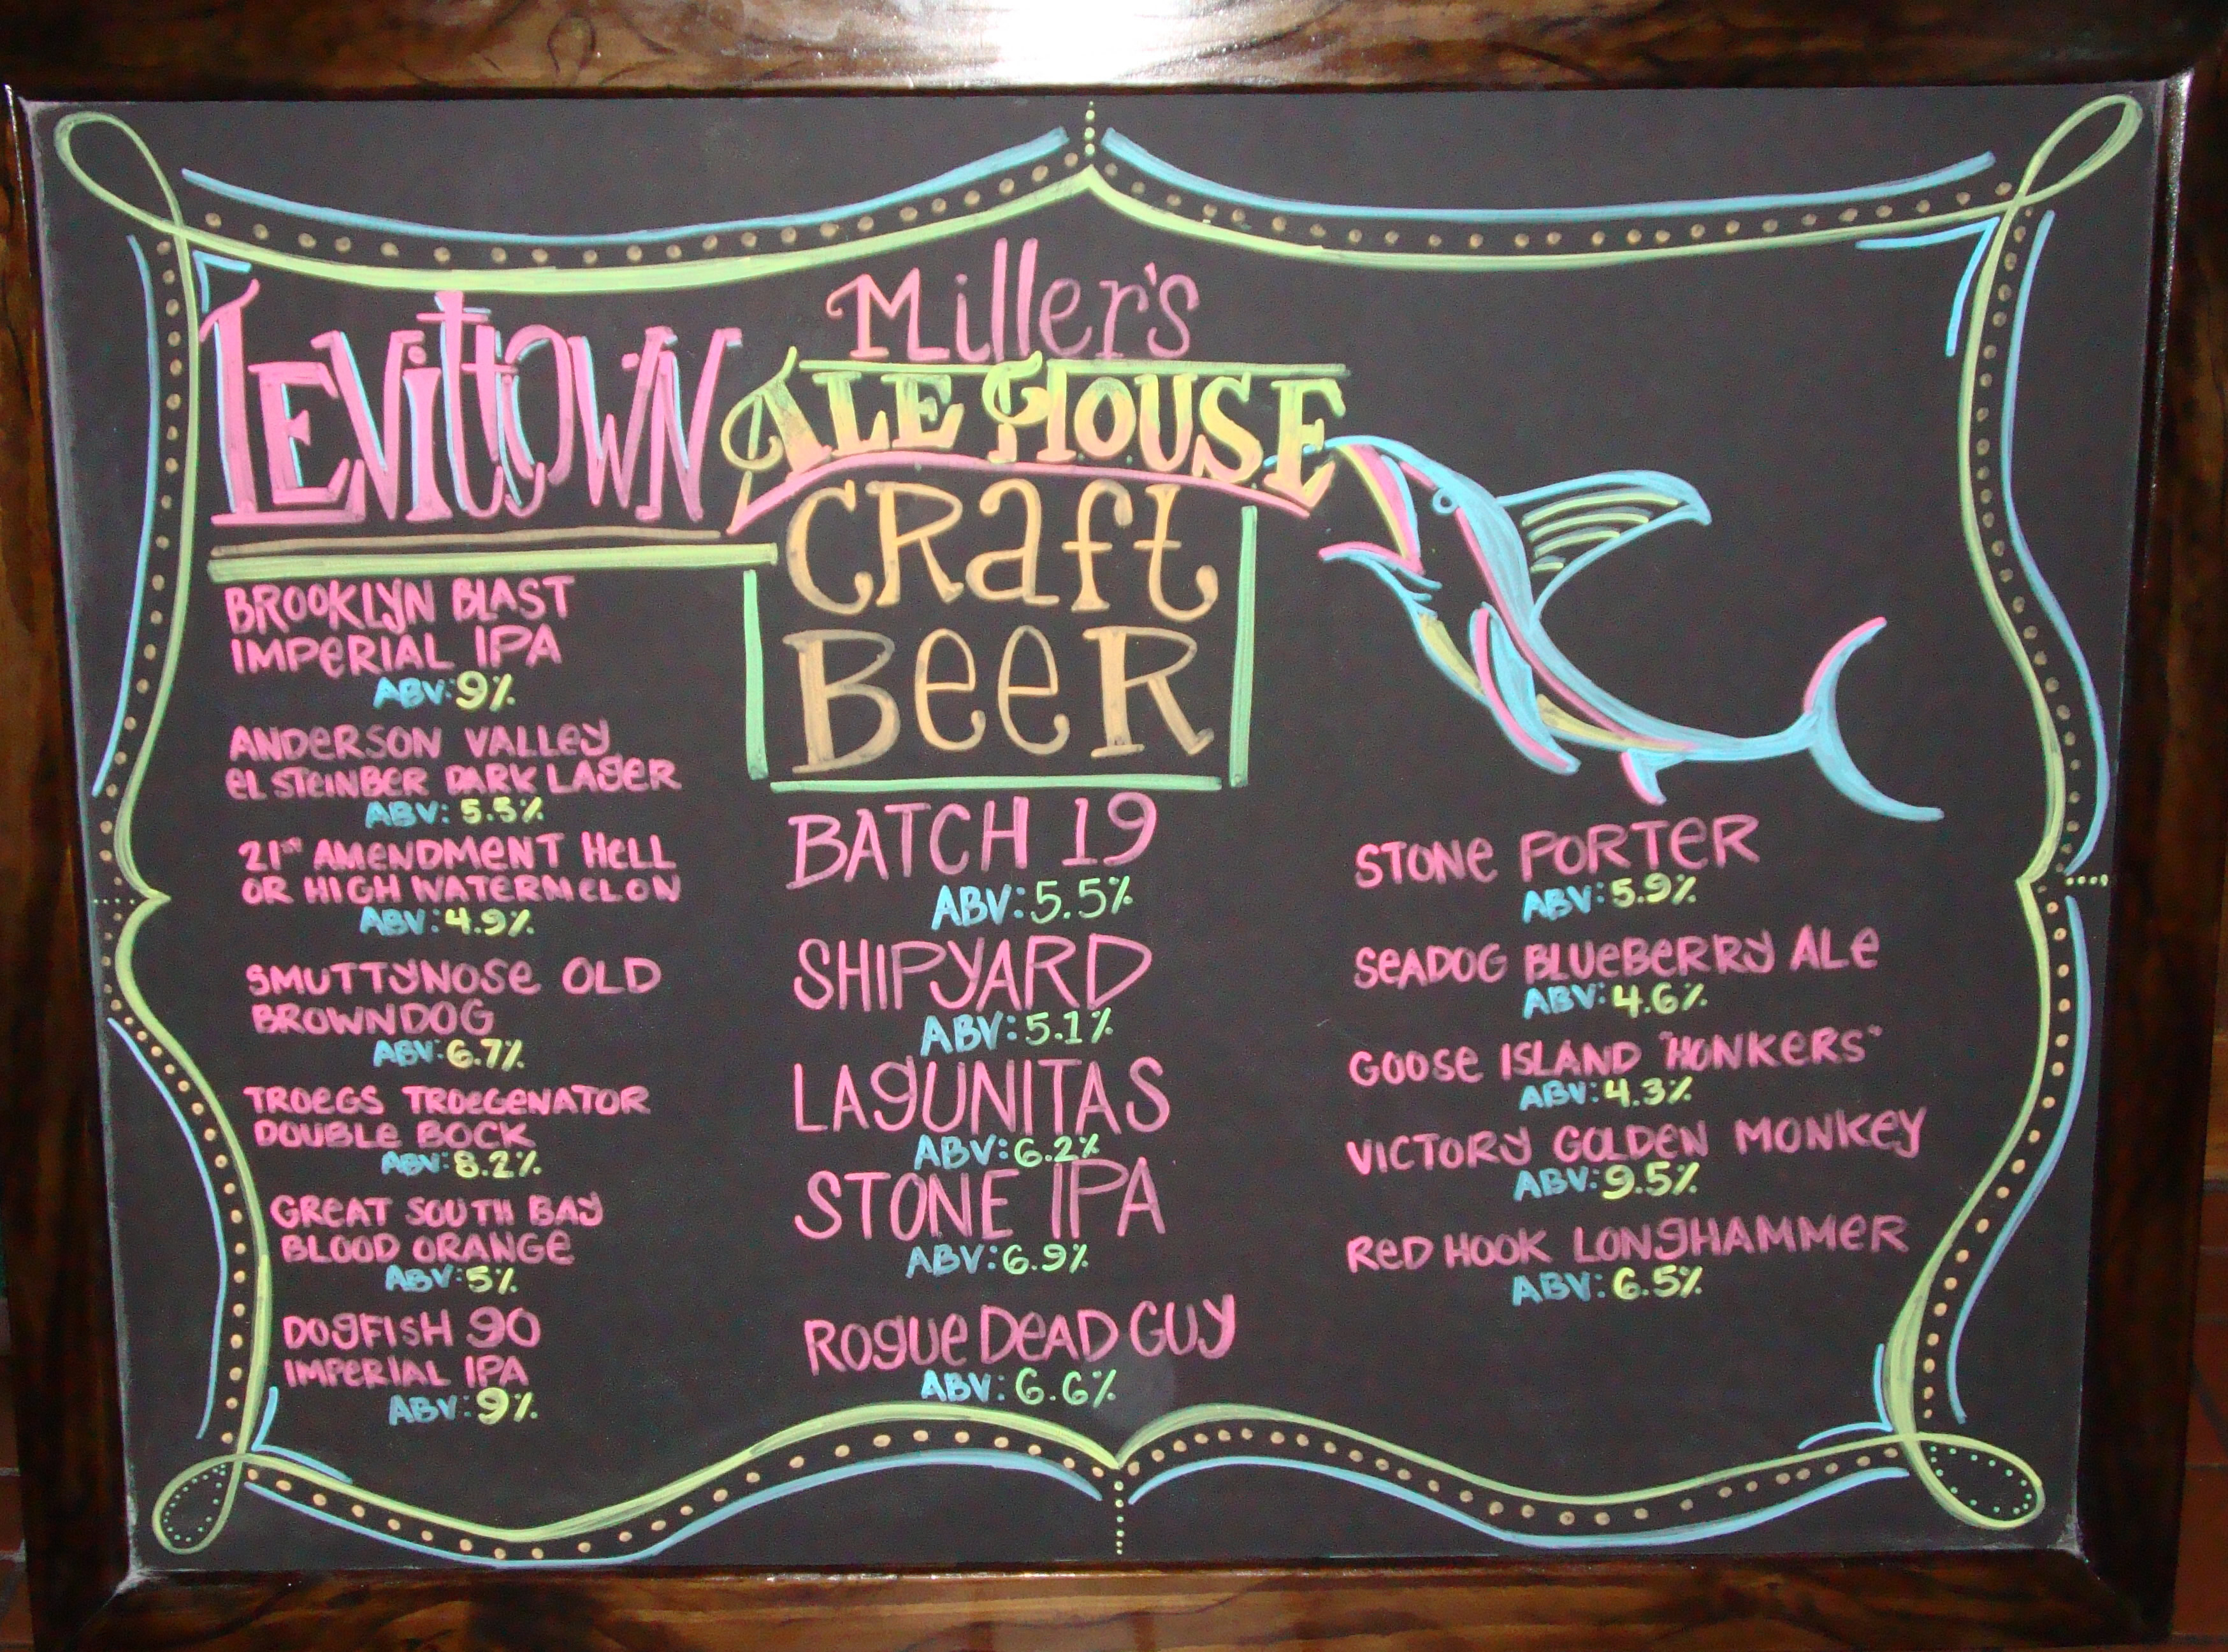 Miller's
Levittown
Ale House
Craft
Beer
BROOKLYN BLAST
IMPERIAL IPA
ABV: 9%
ANDERSON VALLEY
EL STEINBER DARK LAGER
ABV: 5.5%
21st AMENDMENT HELL
OR HIGH WATERMELON
ABV: 4.9%
SMUTTYNOSE OLD
BROWN DOG
ABV: 6.7%
TROEGS TROEGENATOR
DOUBLE BOCK
ABV: 8.2%
GREAT SOUTH BAY
BLOOD ORANGE
ABV: 5%
DOGFISH 90
IMPERIAL IPA
ABV: 9%
BATCH 19
ABV: 5.5%
SHIPYARD
ABV: 5.1%
LAGUNITAS
ABV: 6.2%
STONE IPA
ABV: 6.9%
ROGUE DEAD GUY
ABV: 6.6%
STONE PORTER
ABV: 5.9%
SEADOG BLUEBERRY ALE
ABV: 4.6%
GOOSE ISLAND "HONKERS"
ABV: 4.3%
VICTORY GOLDEN MONKEY
ABV: 9.5%
RED HOOK LONGHAMMER
ABV: 6.5%